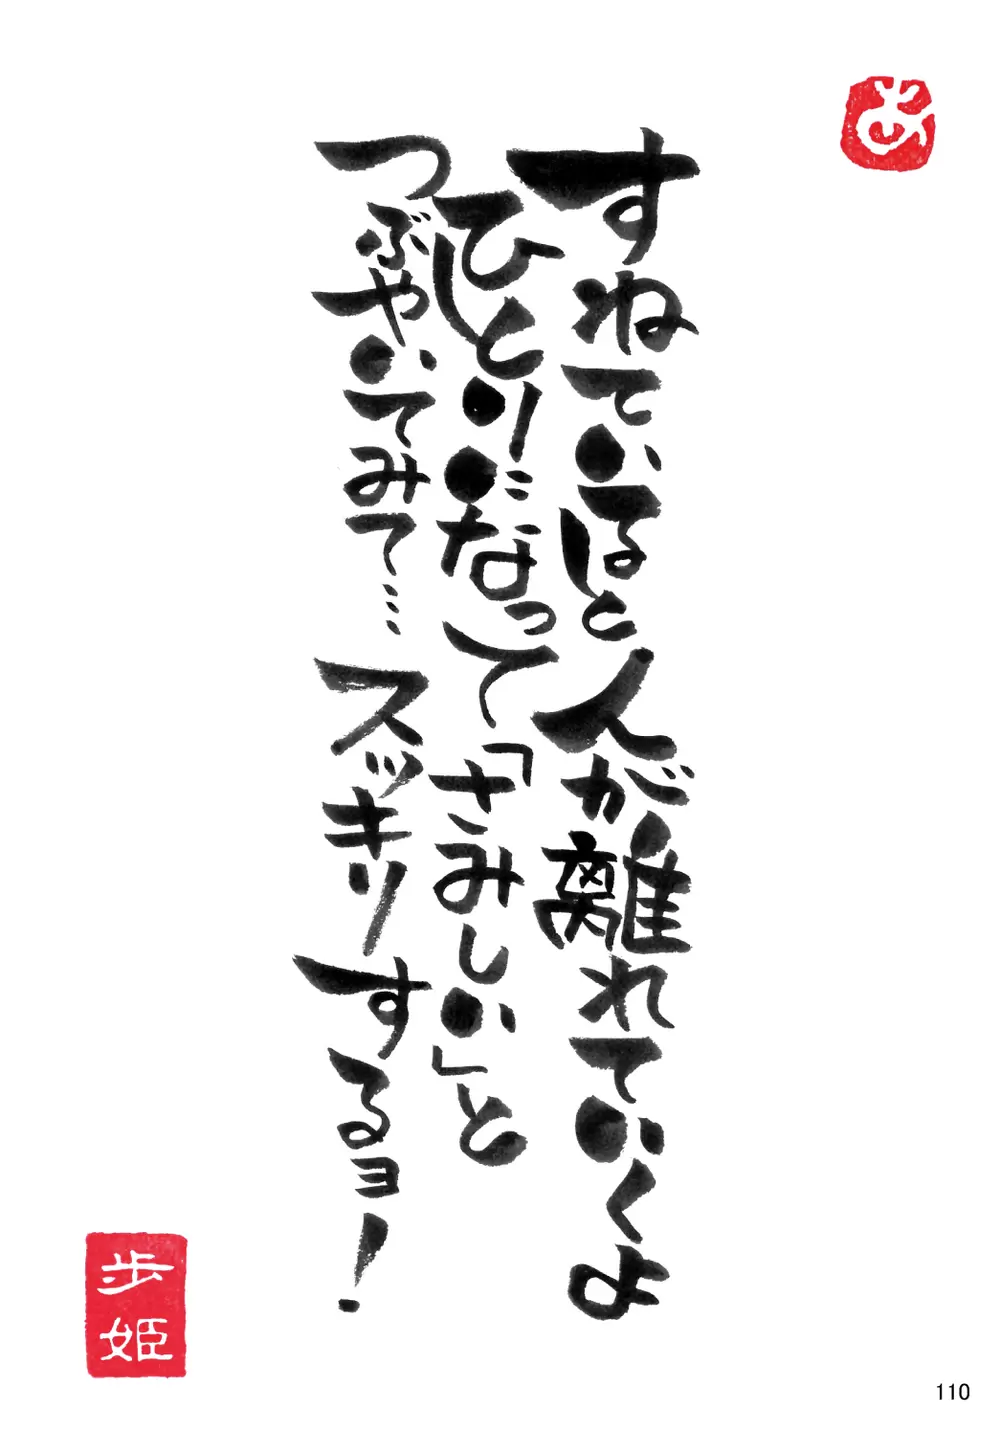 あ
すねていると人が離れていくよ
ひとりになって「さみしい」と
つぶやいてみて…スッキリするョ!
歩姫
110